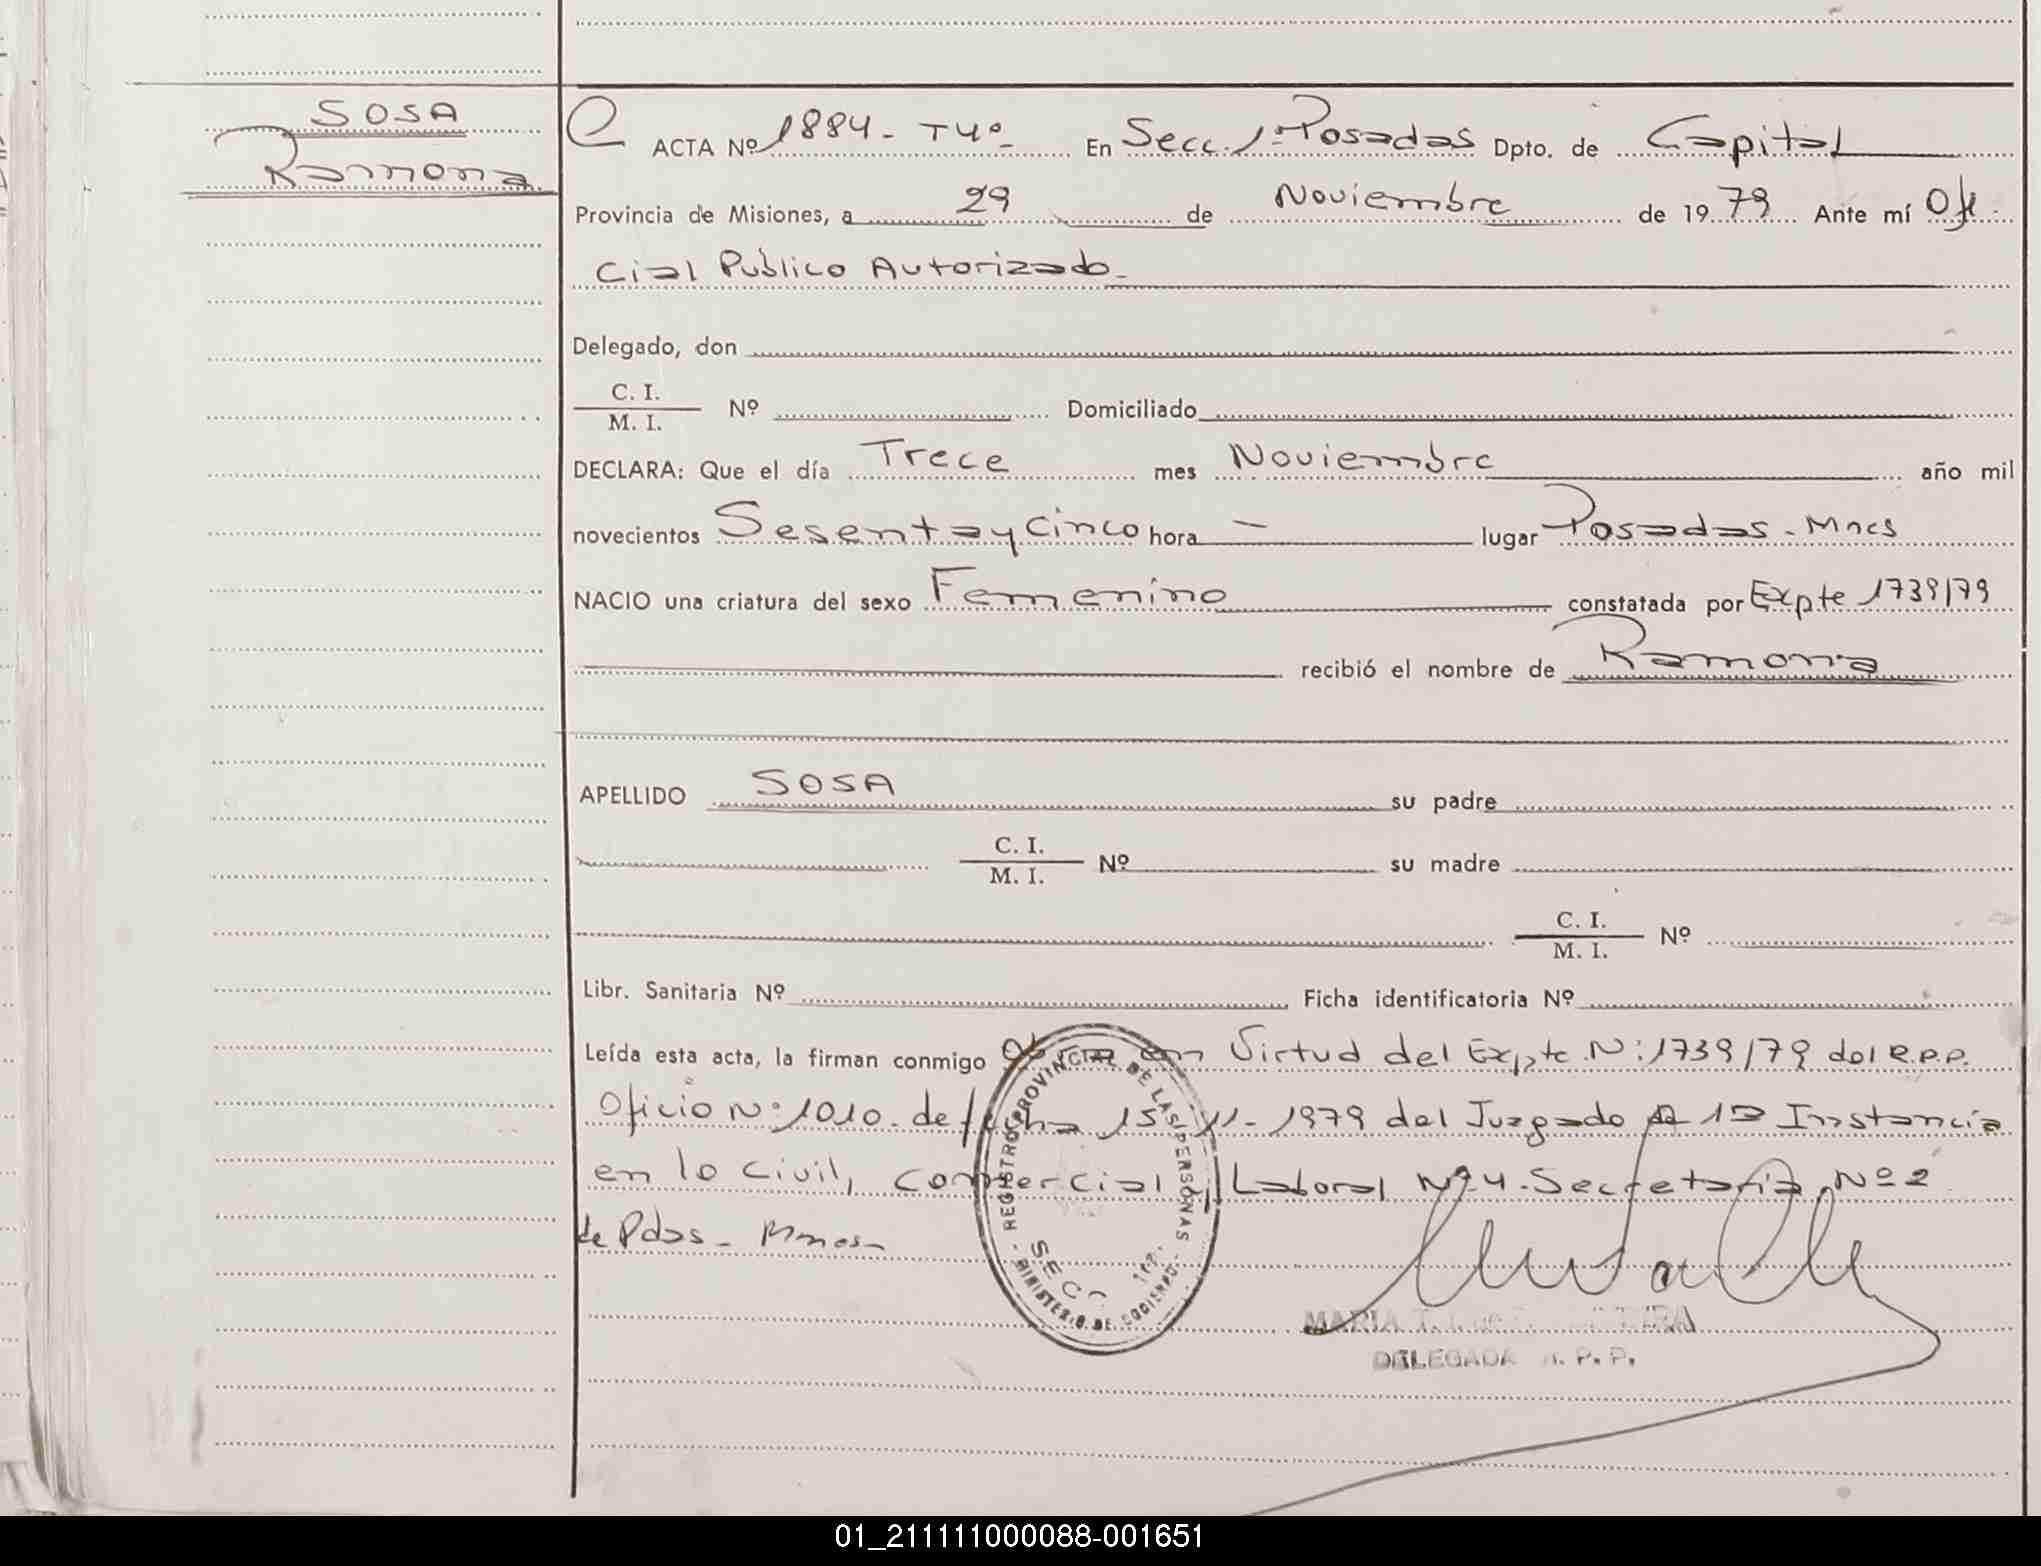 SOSA
Ramona
ACTA Nº 1884- T4º En Secc. 1ª Posadas Dpto. de Capital
Provincia de Misiones, a 29 de Noviembre de 1979 Ante mí Ofi-
cial Publico Autorizado-
Delegado, don
C. I.
M. I. Nº Domiciliado
DECLARA: Que el día Trece mes Noviembre año mil
novecientos Sesenta y Cinco hora — lugar Posadas - Mnes
NACIO una criatura del sexo Femenino constatada por Expte 1739/79
recibió el nombre de Ramona
APELLIDO SOSA su padre
C. I.
M. I. Nº su madre
C. I.
M. I. Nº
Libr. Sanitaria Nº Ficha identificatoria Nº
Leída esta acta, la firman conmigo en Virtud del Expte. Nº: 1739/79 del R.P.P.
Oficio Nº 1010. de fecha 15-11-1979 del Juzgado 1ª Instancia
en lo Civil, Comercial y Laboral Nº 4. Secretaria Nº 2
de Pdas - Mnes-
REGISTRO PROVINCIAL DE LAS PERSONAS
SECC
MINISTERIO DE GOBIERNO
MARIA T.
DELEGADA R. P. P.
01_211111000088-001651